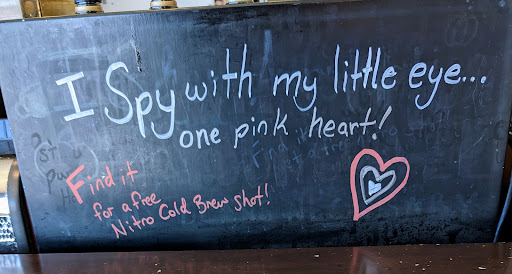 I Spy with my little eye...
one pink heart!
Find it
for a free
Nitro Cold Brew shot!